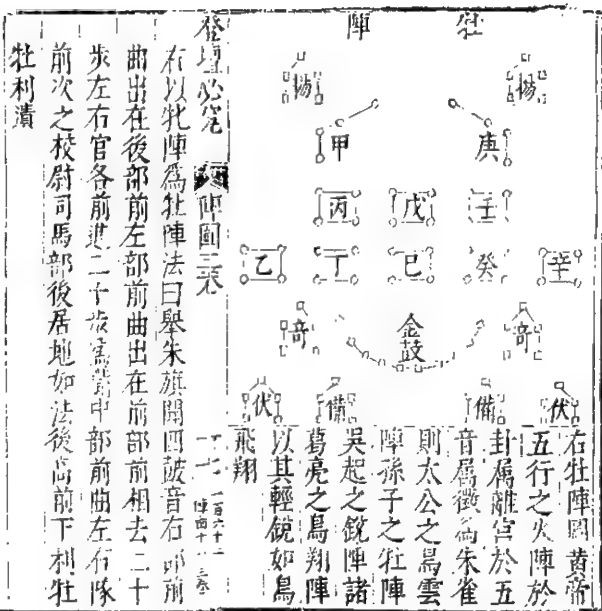 牡陣
揚
揚
庚
甲
壬
戊
丙
辛
癸
己
丁
乙
奇
金鼓
奇
伏
備
備
伏
右牡陣圖黃帝
五行之火陣於
卦属離宮於五
音属徵為朱雀
則太公之鳥雲
陣孫子之牡陣
吳起之銳陣諸
葛亮之鳥翔陣
以其輕銳如鳥
飛翔
登壇必究
陣圖三卷
一百六十二
右以牝陣為牡陣法曰舉朱旗鬧四鼓音右部前
曲出在後部前左部前曲出在前部前相去二十
步左右官各前進二十步中部前曲左右隊
前次之校尉司馬部後居地如法後高前下利牡
牡利漬